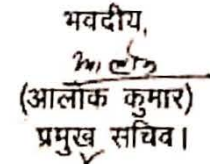 भवदीय,
(आलोक कुमार)
प्रमुख सचिव।